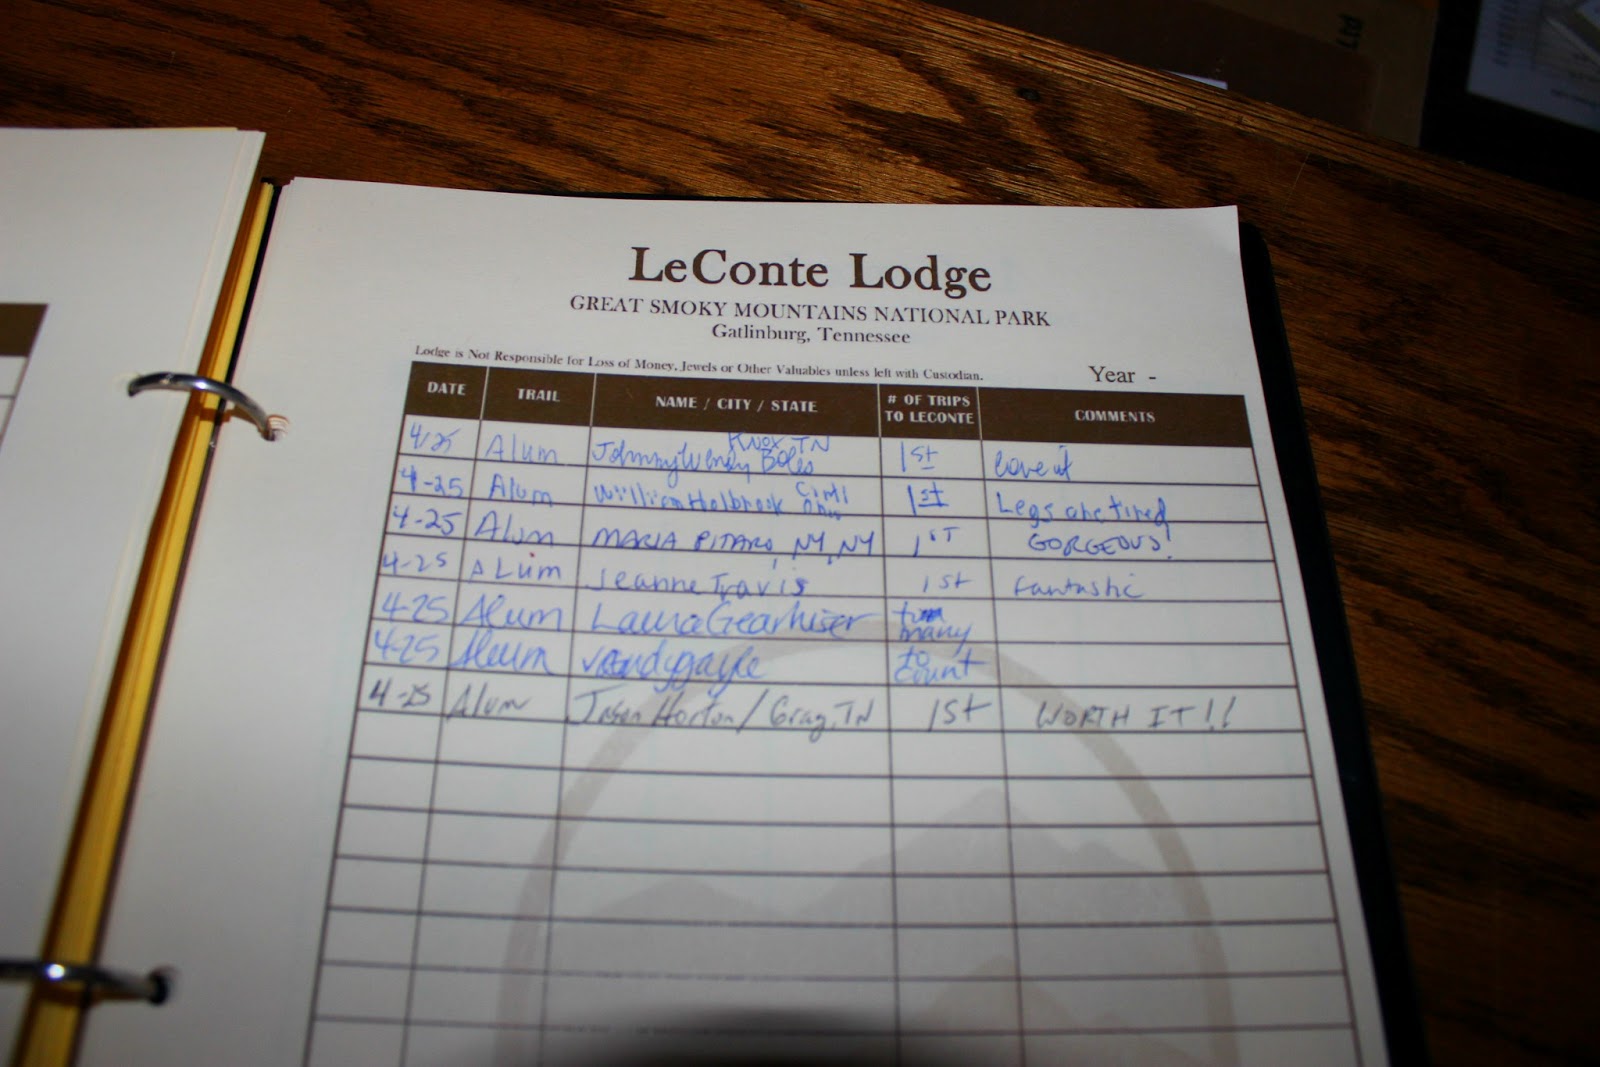 Ltd
LeConte Lodge
GREAT SMOKY MOUNTAINS NATIONAL PARK
Gatlinburg, Tennessee
Lodge is Not Responsible for Loss of Money, Jewels or Other Valuables unless left with Custodian.
Year -
DATE TRAIL NAME / CITY / STATE # OF TRIPS TO LECONTE COMMENTS
4/25 Alum Johnny Wendy Boles Knox TN 1st Love it
4-25 Alum William Holbrook Cinti Ohio 1st Legs are tired
4-25 Alum MARIA PITARO, NY, NY 1ST GORGEOUS!
4-25 ALUM Jeanne Travis 1st Fantastic
4-25 Alum Laura Gearhiser many
4-25 Alum to count
4-25 Alum Jason Horton / Gray, TN 1st WORTH IT!!